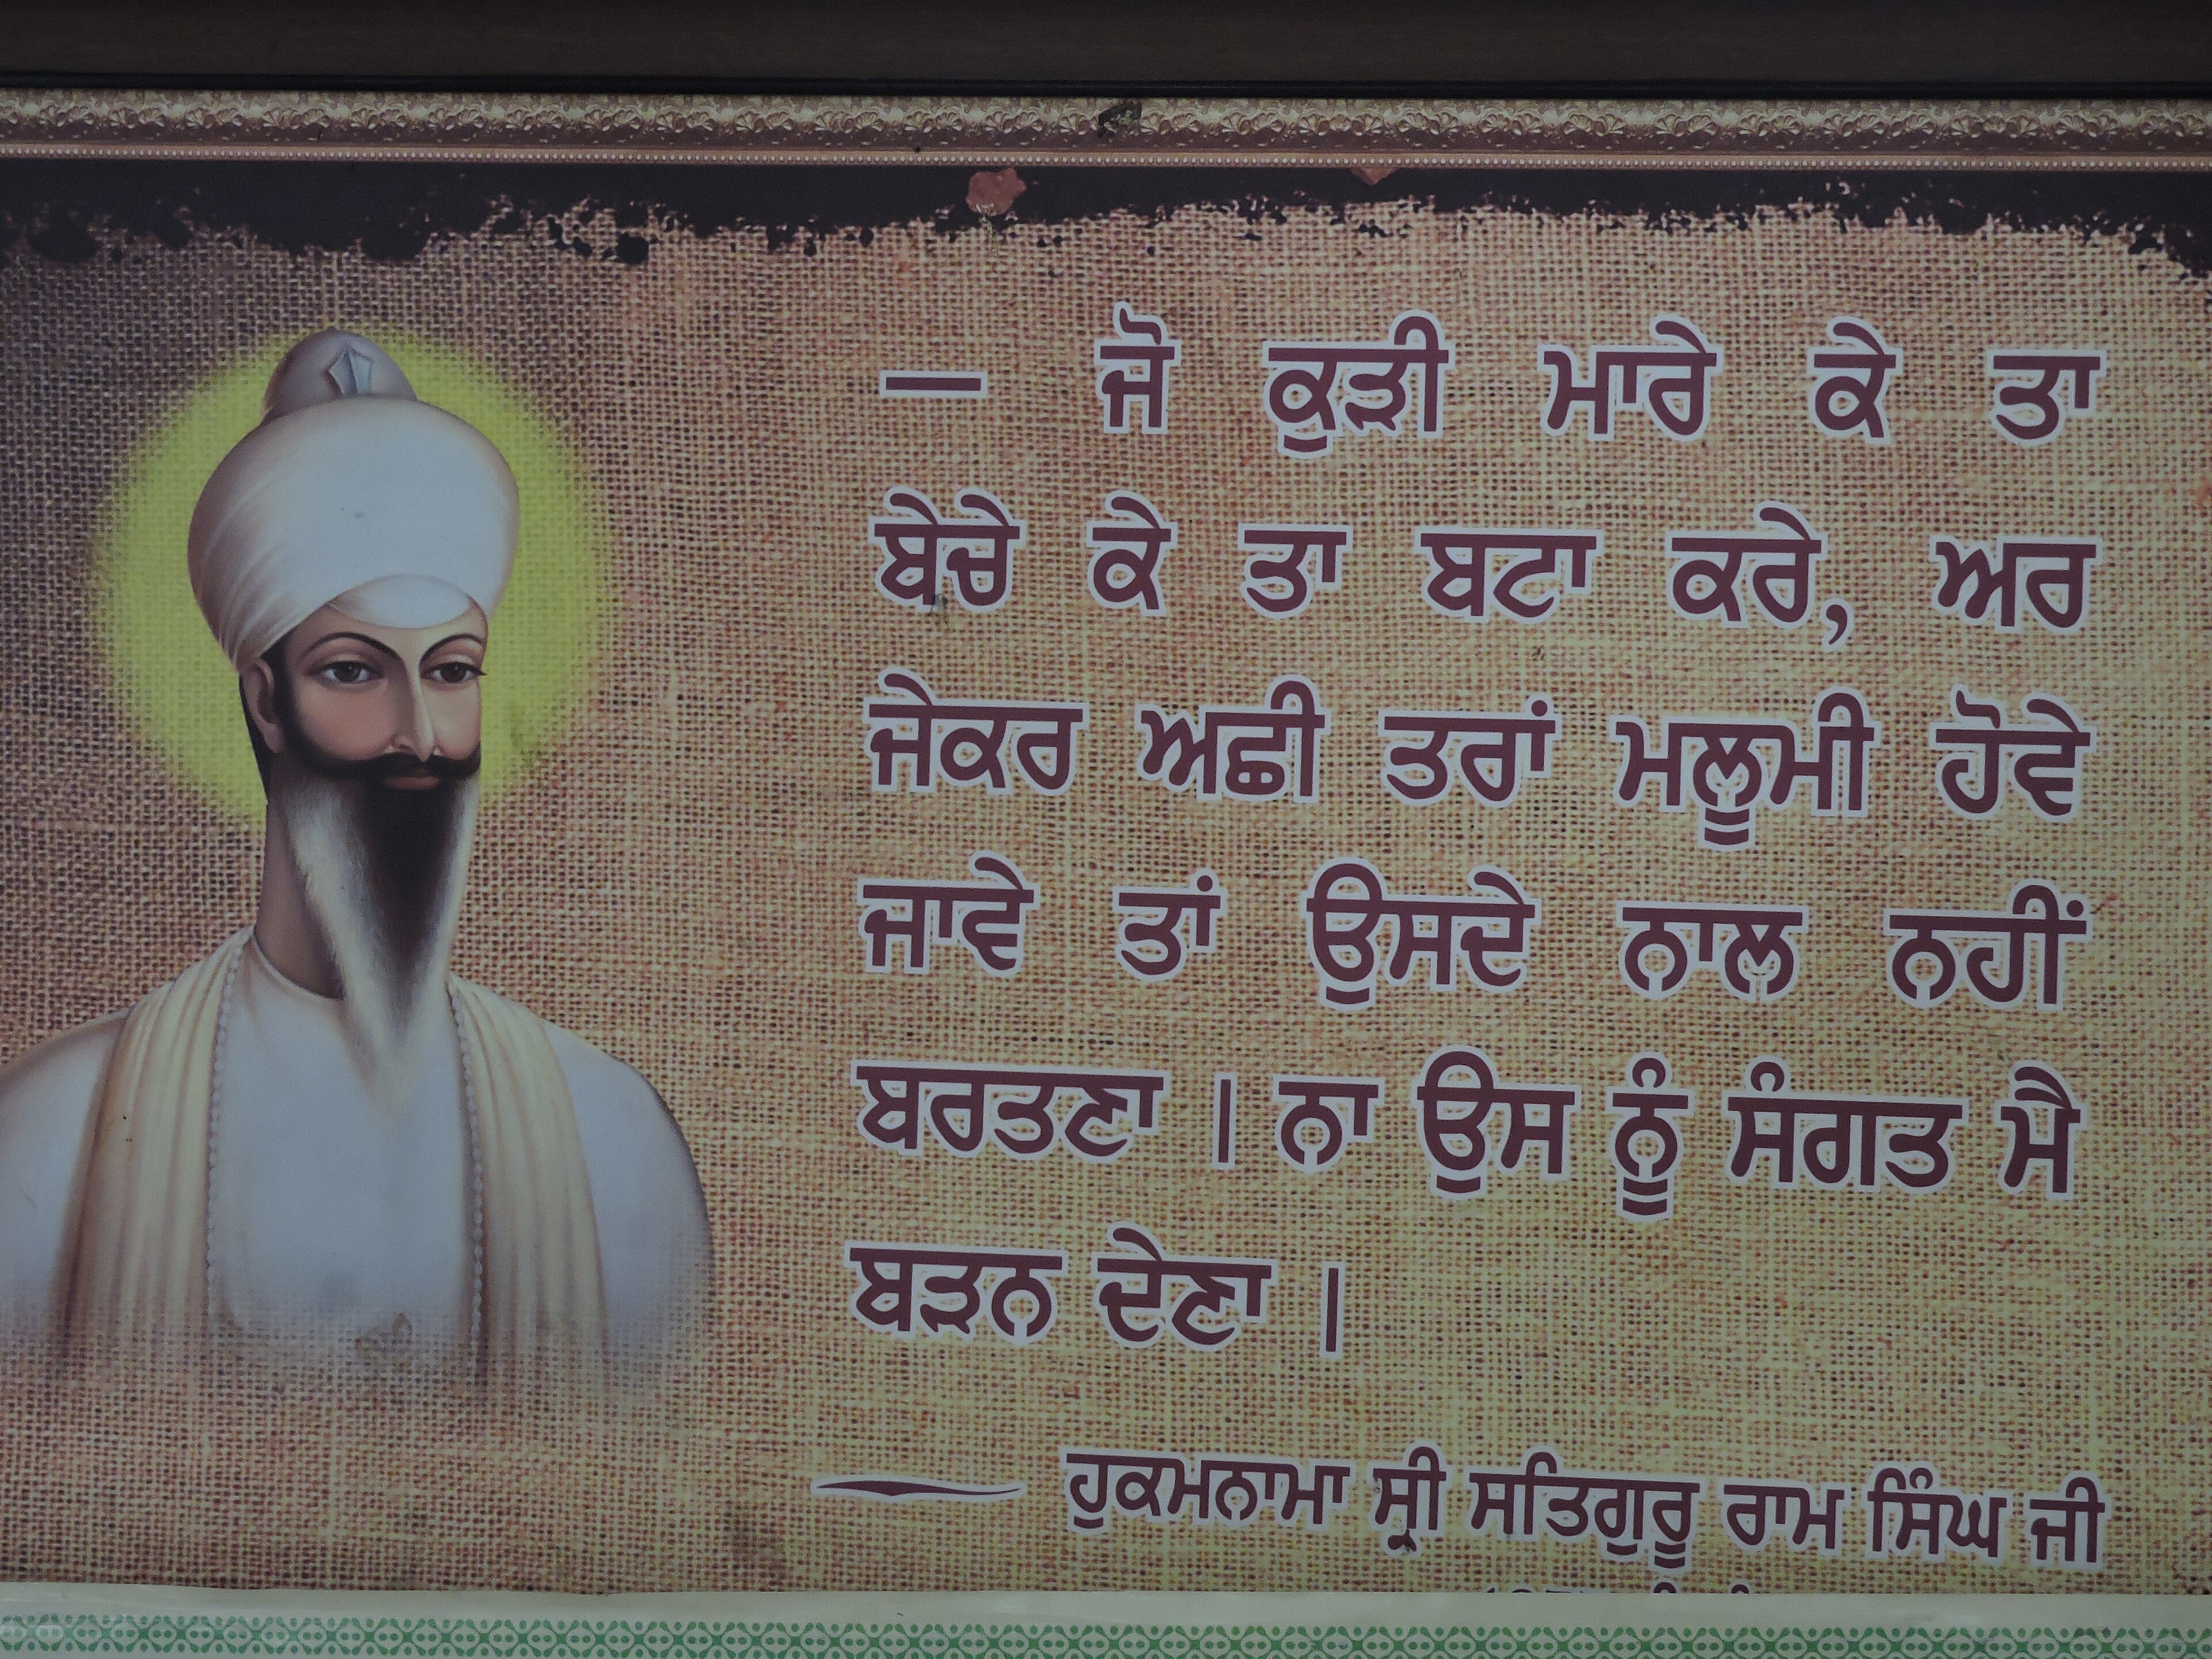 — ਜੋ ਕੁੜੀ ਮਾਰੇ ਕੇ ਤਾ
ਬੇਚੇ ਕੇ ਤਾ ਬਟਾ ਕਰੇ, ਅਰ
ਜੇਕਰ ਅਛੀ ਤਰਾਂ ਮਲੂਮੀ ਹੋਵੇ
ਜਾਵੇ ਤਾਂ ਉਸਦੇ ਨਾਲ ਨਹੀਂ
ਬਰਤਣਾ । ਨਾ ਉਸ ਨੂੰ ਸੰਗਤ ਮੈ
ਬੜਨ ਦੇਣਾ ।
— ਹੁਕਮਨਾਮਾ ਸ੍ਰੀ ਸਤਿਗੁਰੂ ਰਾਮ ਸਿੰਘ ਜੀ